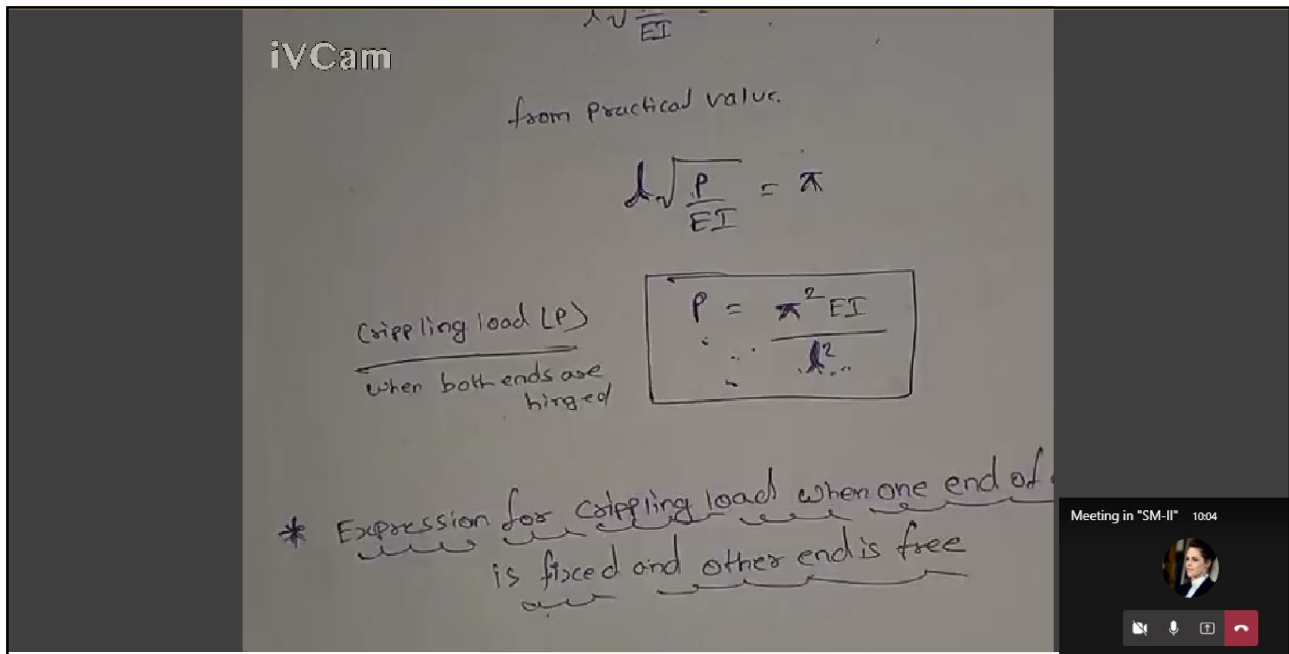 l√P/EI =
iVCam
from practical value.
l√P/EI = π
P = π² EI
l²
Crippling load (P)
when both ends are
hinged
* Expression for crippling load when one end of
is fixed and other end is free
Meeting in "SM-II" 10:04